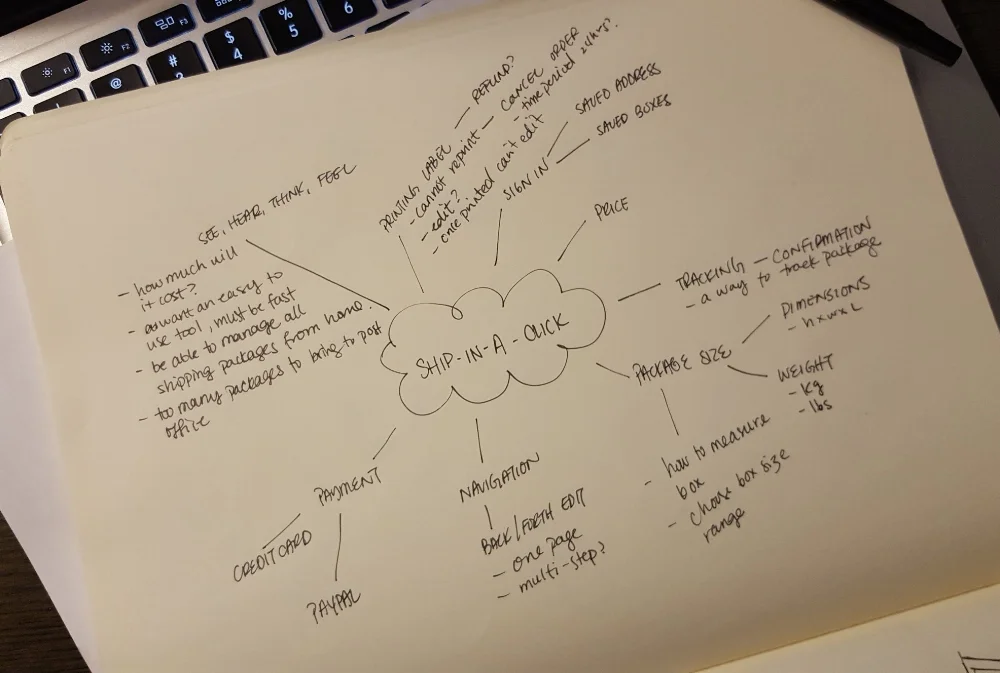 F1
F2
F3
@
2
#
3
$
4
%
5
6
SHIP-IN-A-CLICK
SEE, HEAR, THINK, FEEL
- how much will
it cost?
- want an easy to
use tool, must be fast
- be able to manage all
shipping packages from home.
- too many packages to bring to post
office
PRINTING LABEL
- cannot reprint
- edit?
- once printed can't edit
REFUND?
CANCEL ORDER
- time period 24hrs?
SIGN IN
SAVED ADDRESS
SAVED BOXES
PRICE
TRACKING - CONFIRMATION
- a way to track package
PACKAGE SIZE
DIMENSIONS
- h x w x L
WEIGHT
- kg
- lbs
- how to measure
box
- choose box size
range
NAVIGATION
BACK/FORTH EDIT
- one page
- multi-step?
PAYMENT
CREDIT CARD
PAYPAL